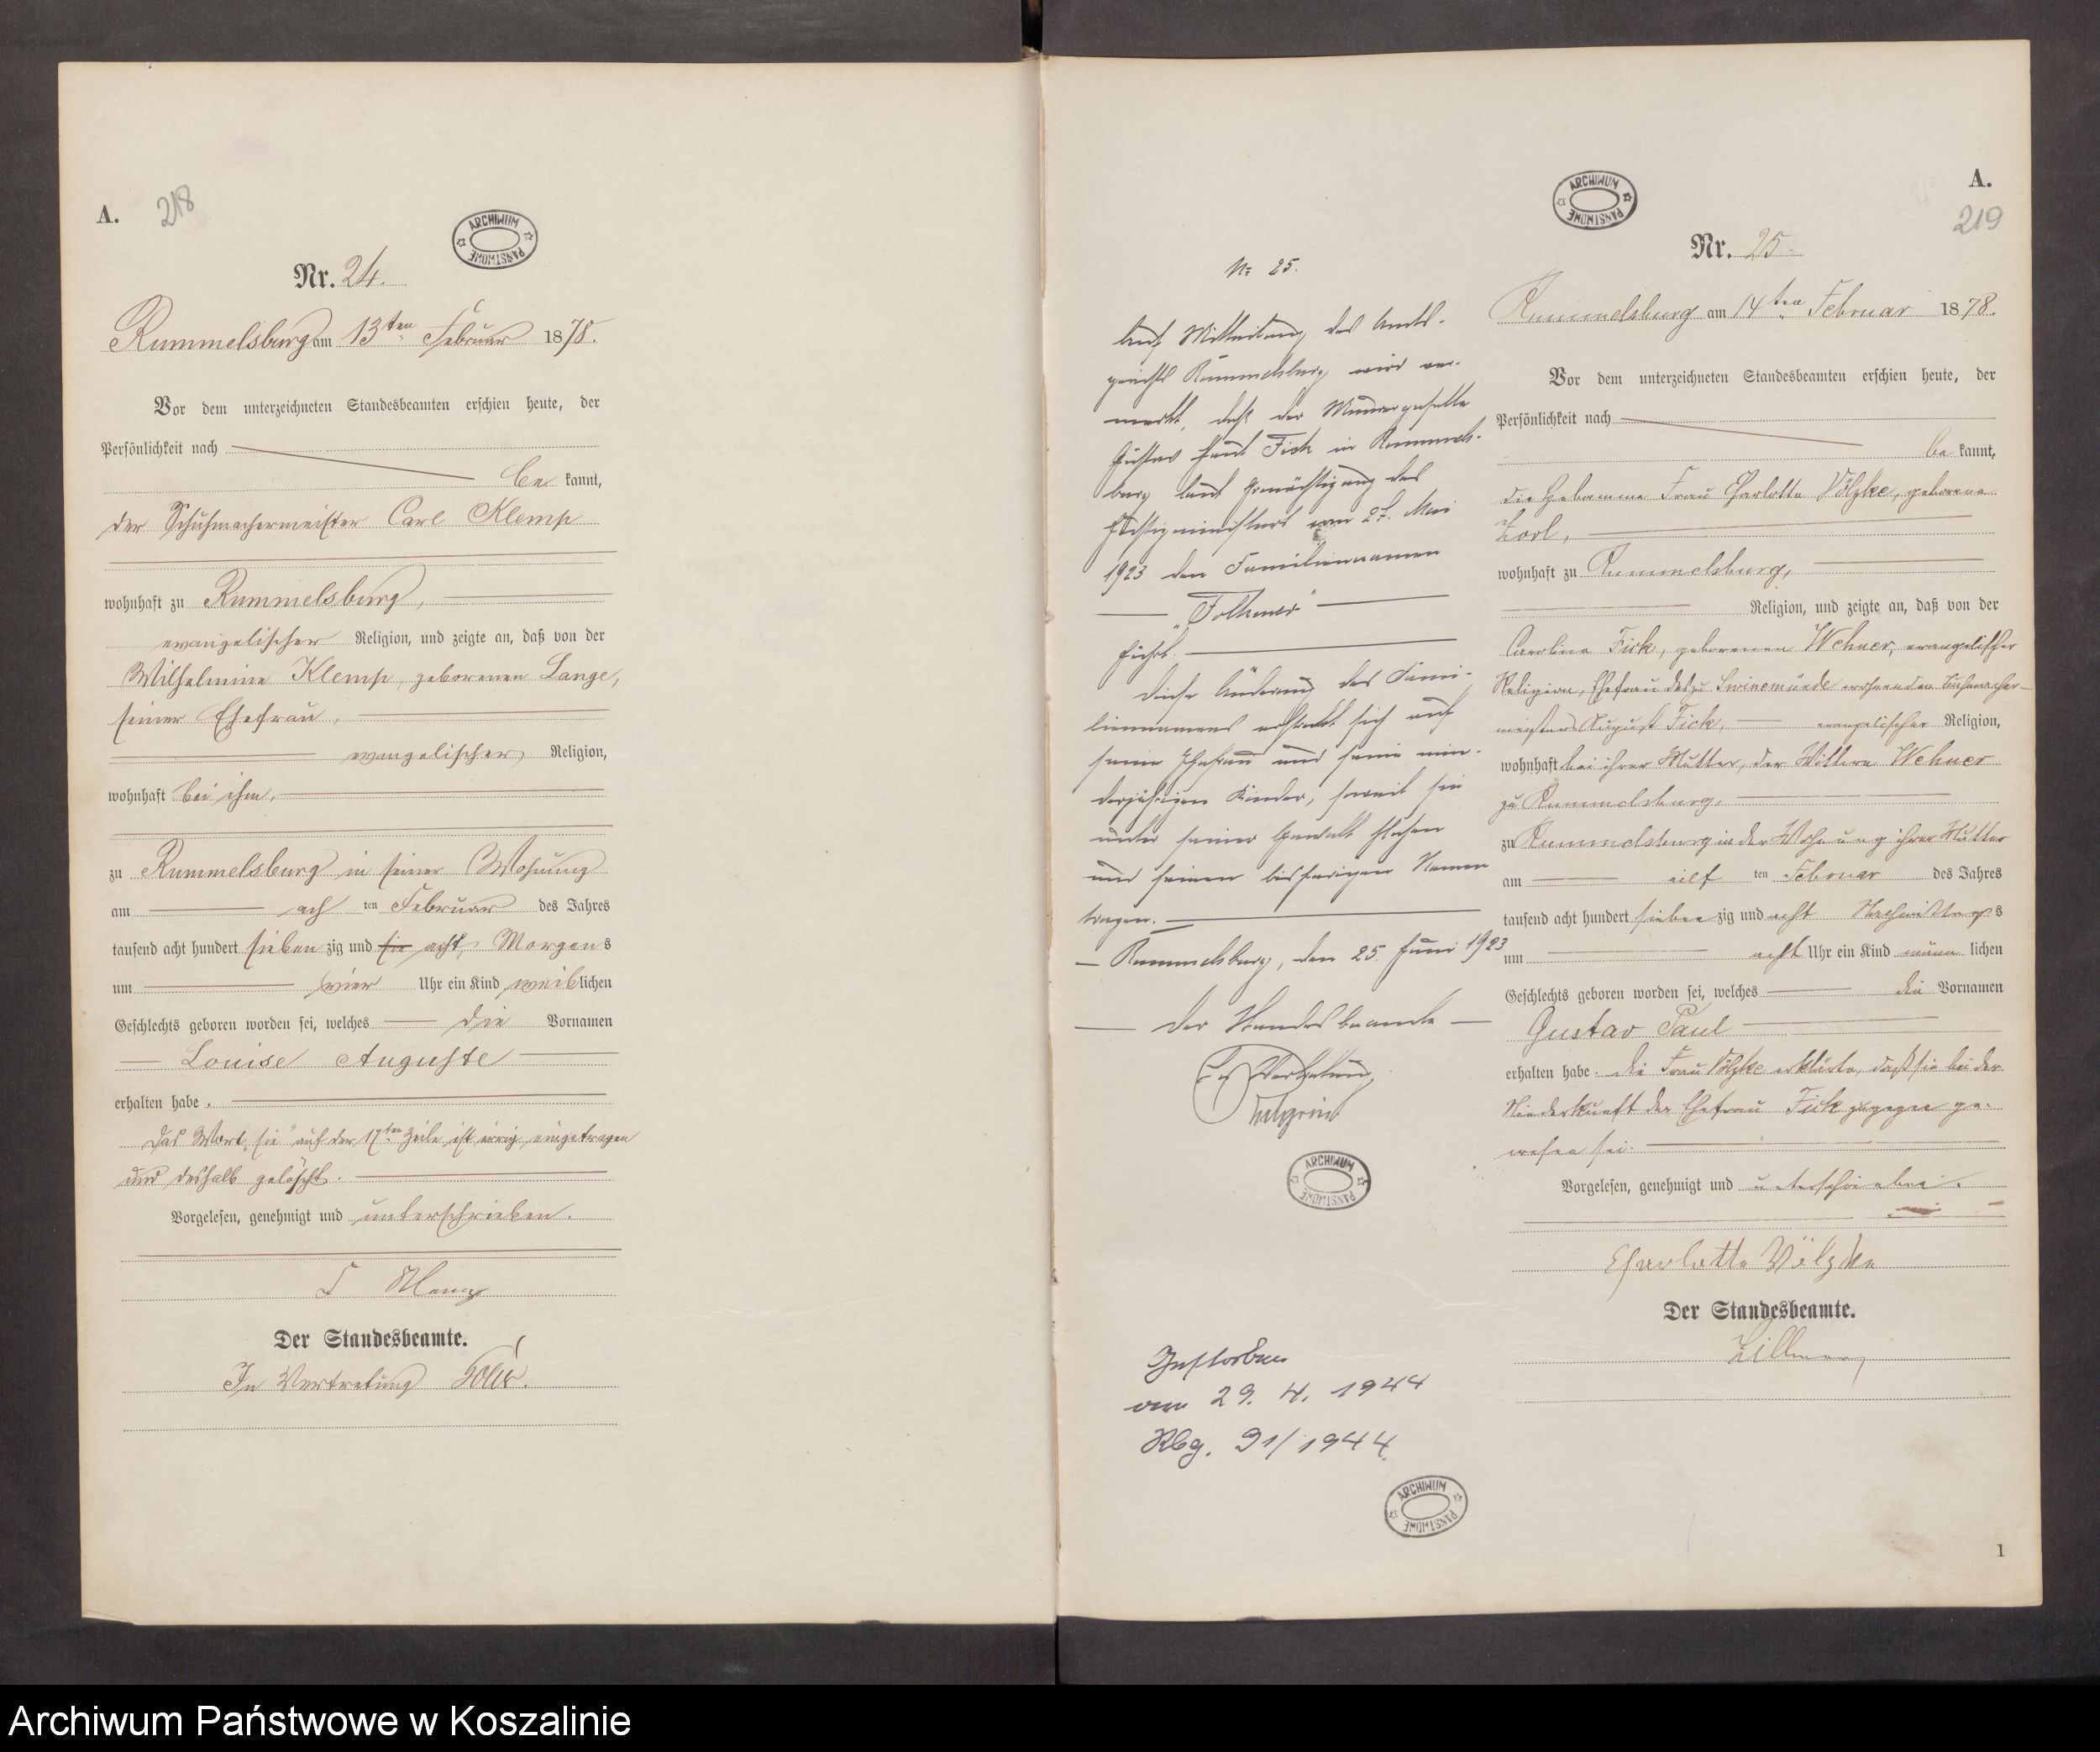 A.
218
ARCHIWUM PAŃSTWOWE
Nr. 24.
Rummelsburg am 13ten Februar 1878.
Vor dem unterzeichneten Standesbeamten erschien heute, der
Persönlichkeit nach
be kannt,
der Schuhmachermeister Carl Klemp
wohnhaft zu Rummelsburg,
evangelischer Religion, und zeigte an, daß von der
Wilhelmine Klemp, geborenen Lange,
seiner Ehefrau,
evangelischer Religion,
wohnhaft bei ihm,
zu Rummelsburg in seiner Wohnung
am ach ten Februar des Jahres
tausend acht hundert sieben zig und sie acht, Morgens
um vier Uhr ein Kind weiblichen
Geschlechts geboren worden sei, welches die Vornamen
Louise Auguste
erhalten habe.
Das Wort „sie“ auf der 17ten Zeile ist irrig eingetragen
und deshalb gelöscht.
Vorgelesen, genehmigt und unterschrieben.
Der Standesbeamte.
In Vertretung
ARCHIWUM PAŃSTWOWE
A.
219
No 25.
Auf Mitteilung des Amts-
gerichts Rummelsburg wird ver-
merkt, daß der Maurergeselle
Gustav Paul Fick in Rummels-
burg laut Ermächtigung des
Justizministers vom 27. Mai
1923 den Familiennamen
führt.
Diese Änderung des Fami-
liennamens erstreckt sich auf
seine Ehefrau und seine min-
derjährigen Kinder, soweit sie
unter seiner Gewalt stehen
und seinen bisherigen Namen
tragen.
Rummelsburg, den 25. Juni 1923
Der Standesbeamte
In Vertretung
ARCHIWUM PAŃSTWOWE
Gestorben
am 29. 4. 1944
Rbg. 91/1944.
ARCHIWUM PAŃSTWOWE
Nr. 25.
Rummelsburg am 14ten Februar 1878.
Vor dem unterzeichneten Standesbeamten erschien heute, der
Persönlichkeit nach
be kannt,
die Hebamme Frau Charlotte Völzke, geborene
wohnhaft zu Rummelsburg,
Religion, und zeigte an, daß von der
Caroline Fick, geborenen Wehner, evangelischer
Religion, Ehefrau des zu Swinemünde wohnenden Schuhmacher-
meisters August Fick, evangelischer Religion,
wohnhaft bei ihrer Mutter, der Wittwe Wehner
zu Rummelsburg,
zu Rummelsburg in der Wohnung ihrer Mutter
am eilf ten Februar des Jahres
tausend acht hundert sieben zig und acht Nachmittags
um acht Uhr ein Kind männ lichen
Geschlechts geboren worden sei, welches die Vornamen
Gustav Paul
erhalten habe. Die Frau Völzke erklärte, daß sie bei der
Niederkunft der Ehefrau Fick zugegen ge-
wesen sei.
Vorgelesen, genehmigt und unterschrieben.
Charlotte Völzke
Der Standesbeamte.
1
Archiwum Państwowe w Koszalinie